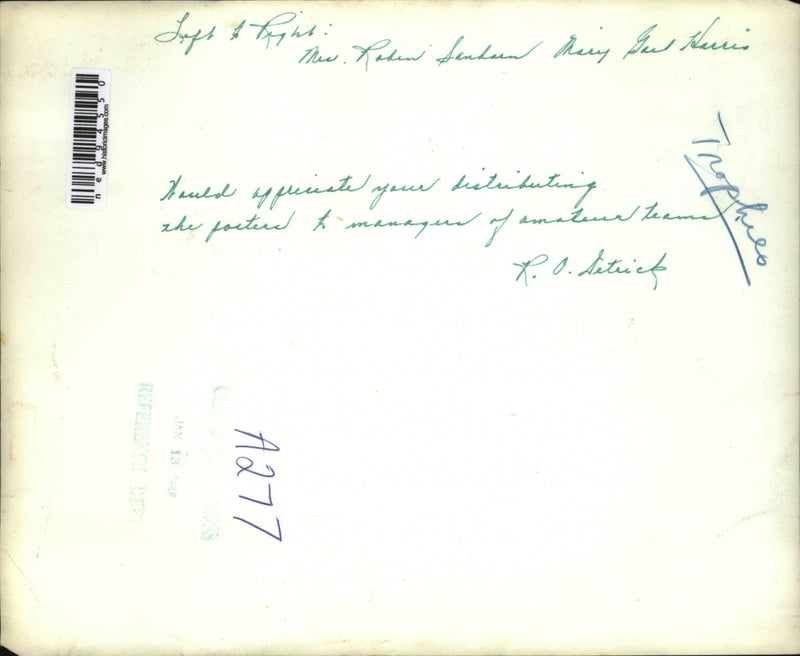 Left to Right:
Mrs. Robin Sanborn Mary Gail Harris
Would appreciate your distributing
the posters to managers of amateur teams
R. O. Detrick
Trophies
ned94550
www.historicimages.com
A277
PRESS
JAN 13
REFERENCE DEPT.